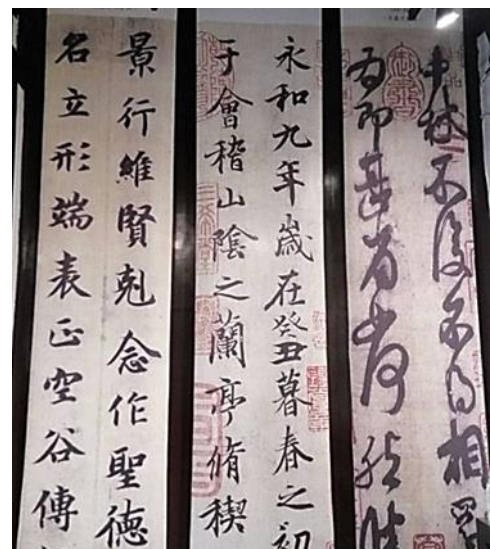 中秋不復不得相
為即甚省如何然勝
永和九年歲在癸丑暮春之初
于會稽山陰之蘭亭脩稧
景行維賢剋念作聖德
名立形端表正空谷傳